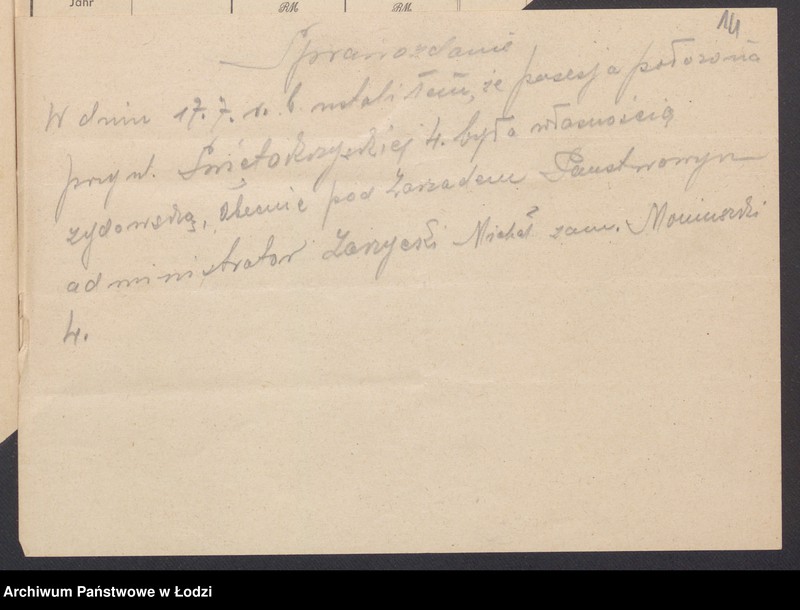 Jahr RM RM
14
Sprawozdanie
W dniu 17.7. r. b. ustaliłem, że posesja położona
przy ul. Świętokrzyskiej 4. była własnością
żydowską, obecnie pod Zarządem Państwowym
administrator Zarzycki Michał zam. Moniuszki
4.
Archiwum Państwowe w Łodzi